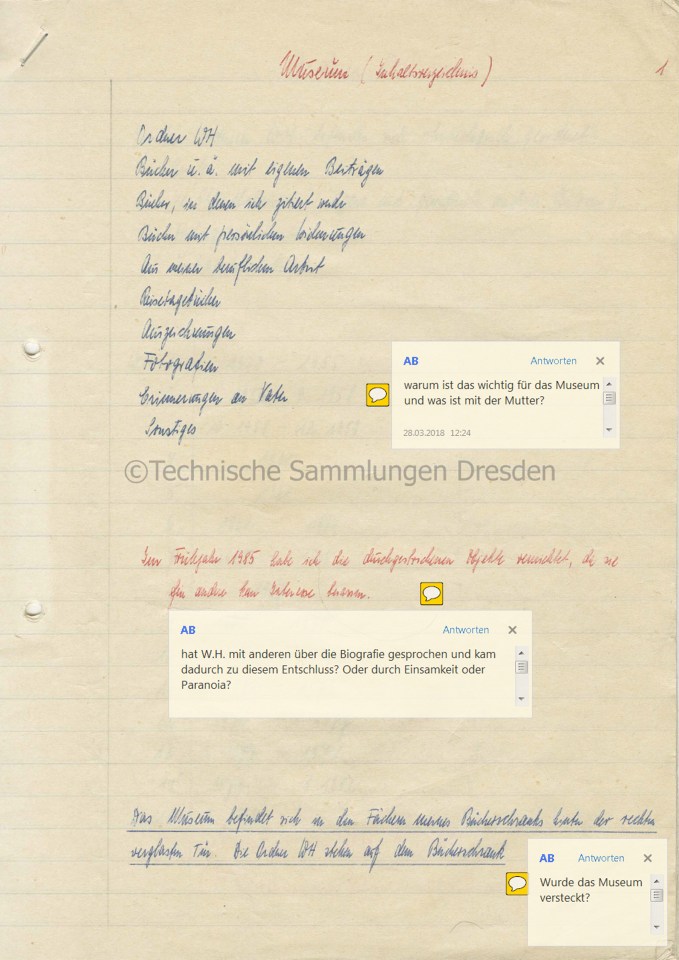 Museum (Inhaltsverzeichnis) 1
Ordner WH
Bücher u. ä. mit eigenen Beiträgen
Bücher, in denen ich zitiert werde
Bücher mit persönlichen Widmungen
Aus meiner beruflichen Arbeit
Reisetagebücher
Auszeichnungen
Fotografien
Erinnerungen an Vater
Sonstiges
AB Antworten
warum ist das wichtig für das Museum
und was ist mit der Mutter?
28.03.2018 12:24
©Technische Sammlungen Dresden
Im Frühjahr 1985 habe ich die durchgestrichenen Objekte vernichtet, da sie
für andere kein Interesse besassen.
AB Antworten
hat W.H. mit anderen über die Biografie gesprochen und kam
dadurch zu diesem Entschluss? Oder durch Einsamkeit oder
Paranoia?
Das Museum befindet sich in den Fächern meines Bücherschranks hinter der rechten
verglasten Tür. Die Ordner WH stehen auf dem Bücherschrank
AB Antworten
Wurde das Museum
versteckt?